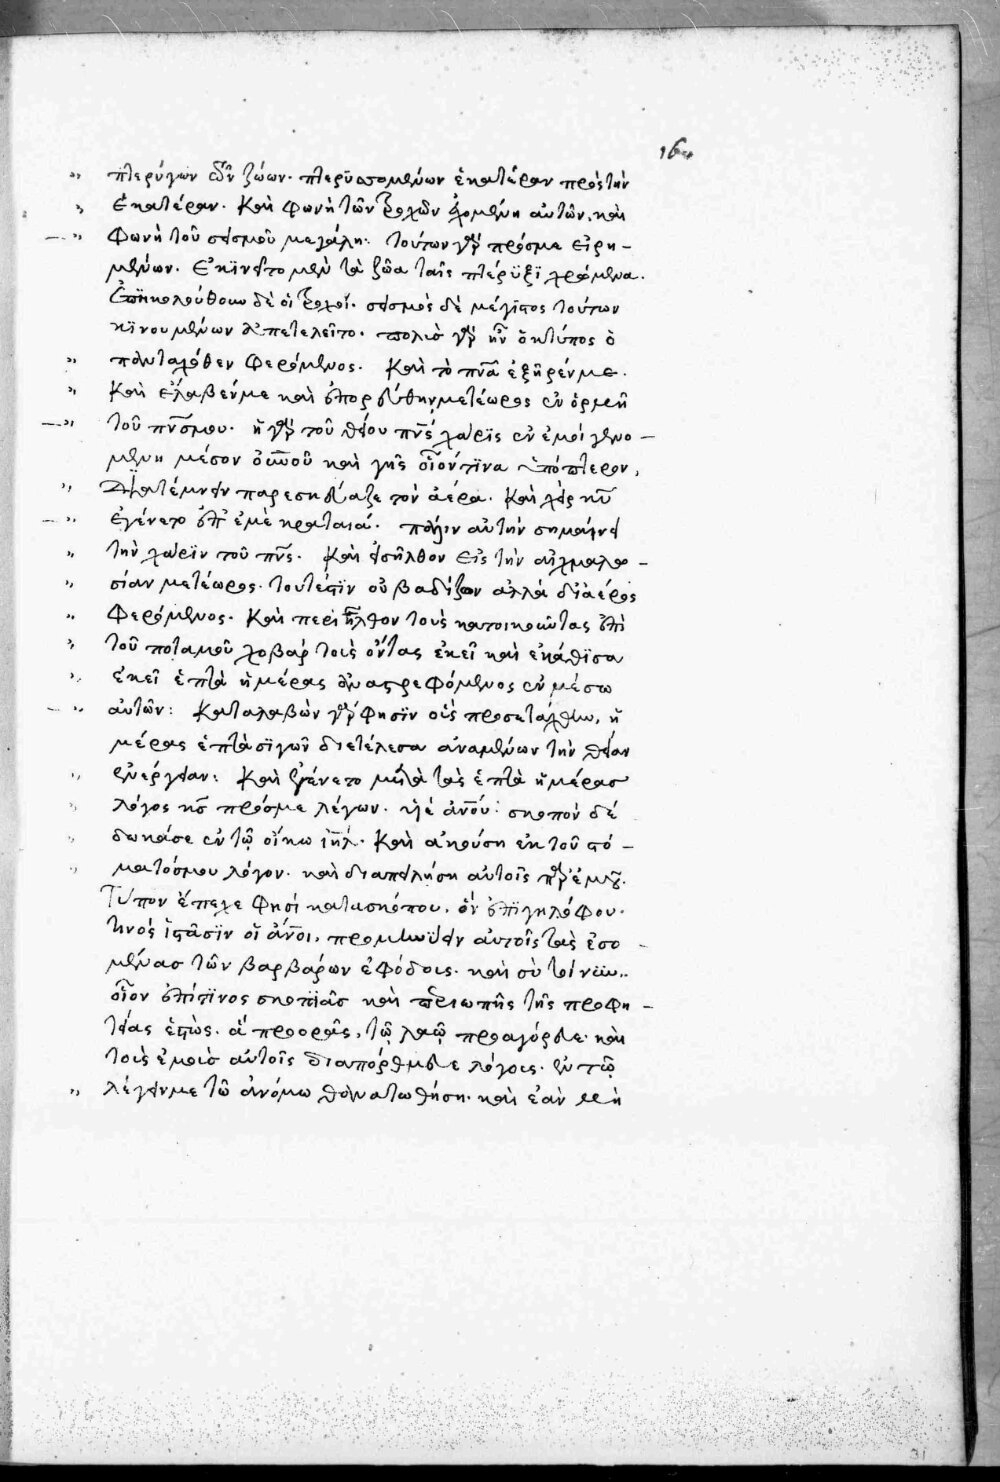 164
" πτερύγων τῶν ζώων· πτερϋσσομένων ἑκατέραν πρὸς τὴν
" ἑκατέραν. Καὶ φωνὴ τῶν τροχῶν ἐχομένη αὐτῶν, καὶ
— " φωνὴ τοῦ σεισμοῦ μεγάλη: τούτων γὰρ πρόσμε εἰρη –
μένων. ἐκϊνεῖτο μὲν τὰ ζῶα ταῖς πτέρϋξϊ χρώμενα.
ἐπηκολούθουν δὲ οἱ τροχοί. σεισμὸς δὲ μέγϊστος τούτων
κϊνουμένων ἀπετελεῖτο. πολὺσ γὰρ ἦν ὁ κτύπος ὁ
" πανταχόθεν φερόμενος. Καὶ τὸ πνᾶ ἐξῆρέν με.
" Καὶ ἔλαβέν με καὶ ἐπορεύθην μετέωρος ἐν ὁρμῆ
— " τοῦ πνς μου. ἡ γὰρ τοῦ θείου πνς χάρϊς ἐν ἐμοὶ γενο –
μένη μέσον οὐνοῦ καὶ γῆς οἷόν τϊνα ὑπόπτερον,
" διατέμνειν παρεσκεύαζε τὸν ἀέρα. Καὶ χεὶρ κυ
— " ἐγένετο ἐπ' ἐμὲ κραταιά. πάλιν αὐτὴν σημαίνει
" τὴν χάρϊν τοῦ πνς. Καὶ εἰσῆλθον εἰς τὴν αἰχμαλω –
" σίαν μετέωρος. τουτέστϊν οὐ βαδίζων ἀλλὰ δϊ ἀέρος
" φερόμενος. Καὶ περιῆλθον τοὺς κατοικοῦντας ἐπὶ
" τοῦ ποταμοῦ χοβὰρ τοὺς ὄντας ἐκεῖ καὶ ἐκάθϊσα
" ἐκεῖ ἑπτὰ ἡμέρας ἀναστρεφόμενος ἐν μέσω
— " αὐτῶν: Καταλαβὼν γὰρ φησϊν οὓς προσετάχθην, ἡ
μέρας ἑπτὰ σϊγῶν διετέλεσα ἀναμένων τὴν θείαν
" ἐνέργειαν: Καὶ ἐγένετο μετὰ τὰς ἑπτὰ ἡμέρασ
" λόγος κυ πρόσμε λέγων. υἱὲ ἀνου: σκοπὸν δέ
" δωκάσε ἐν τῷ οἴκω ιηλ. Καὶ ἀκούση ἐκ τοῦ στό –
" ματόσμου λόγον. καὶ διαπειλήση αὐτοῖς παρ' ἐμοῦ.
Τύπον ἐπεῖχε φησί κατασκόπου. ὃν ἐπὶ γηλόφου
τινός ἱστᾶσϊν οἱ ἄνοι, προμηνύειν αὐτοῖς τὰς ἐσο –
μένασ τῶν βαρβάρων ἐφόδους. καὶ σὺ τοίνυν
οἷον ἐπί τϊνος σκοπϊᾶς καὶ περιωπῆς τῆς προφη –
τείας ἑστὼς. ἃ προορᾶς, τῷ λαῷ προαγόρευε. καὶ
τοὺς ἐμοὺσ αὐτοῖς διαπόρθμευε λόγους. ἐν τῷ
" λέγειν με τῶ ἀνόμω θανάτω θανατωθήση. καὶ ἐὰν μὴ
31